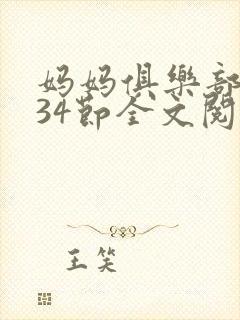 妈妈俱樂部
34節全文閱
王笑